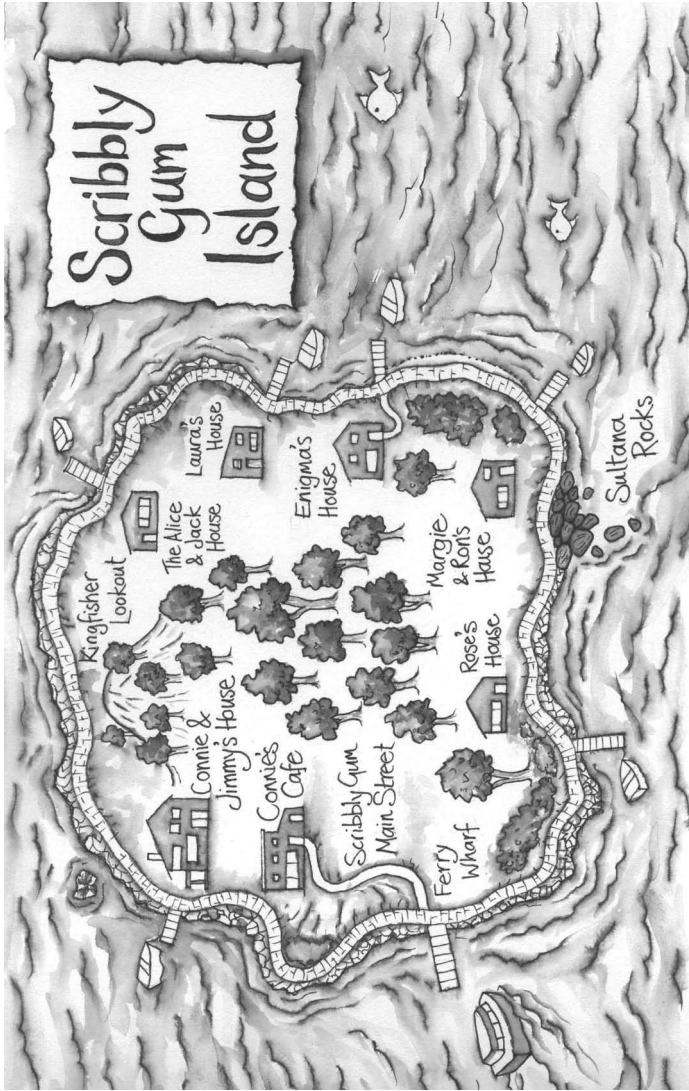 Scribbly
Gum
Island
Kingfisher
Lookout
The Alice
& Jack
House
Laura's
House
Connie &
Jimmy's House
Connie's
Cafe
Enigma's
House
Scribbly Gum
Main Street
Margie
& Ron's
House
Rose's
House
Ferry
Wharf
Sultana
Rocks